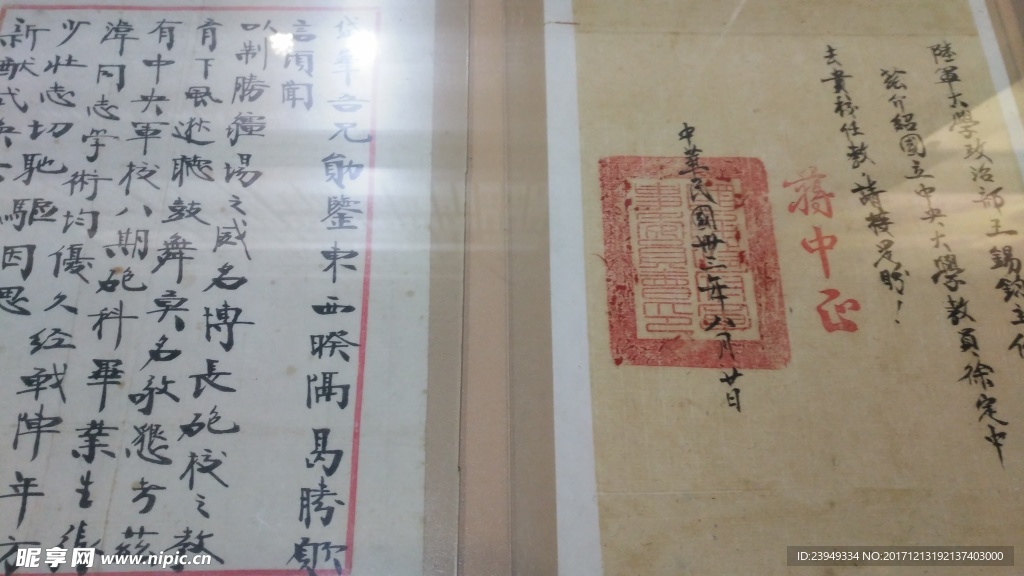 陸軍大學政治部王錫鈞主任
茲介紹國立中央大學教員徐定中
去貴校任教,請接見盼!
蔣中正
中華民國卅二年八月廿日
年吾兄勛鑒東西睽隔曷勝
言面聞
以制勝疆場之威名博長砲校之教
育下風逖聽鼓舞莫名敬懇者茲
有中央軍校八期砲科畢業生張
漳同志学術均優久经戰陣年方
少壯志切馳驅因思
新猷式
昵享网 www.nipic.cn
ID:23949334 NO:20171213192137403000